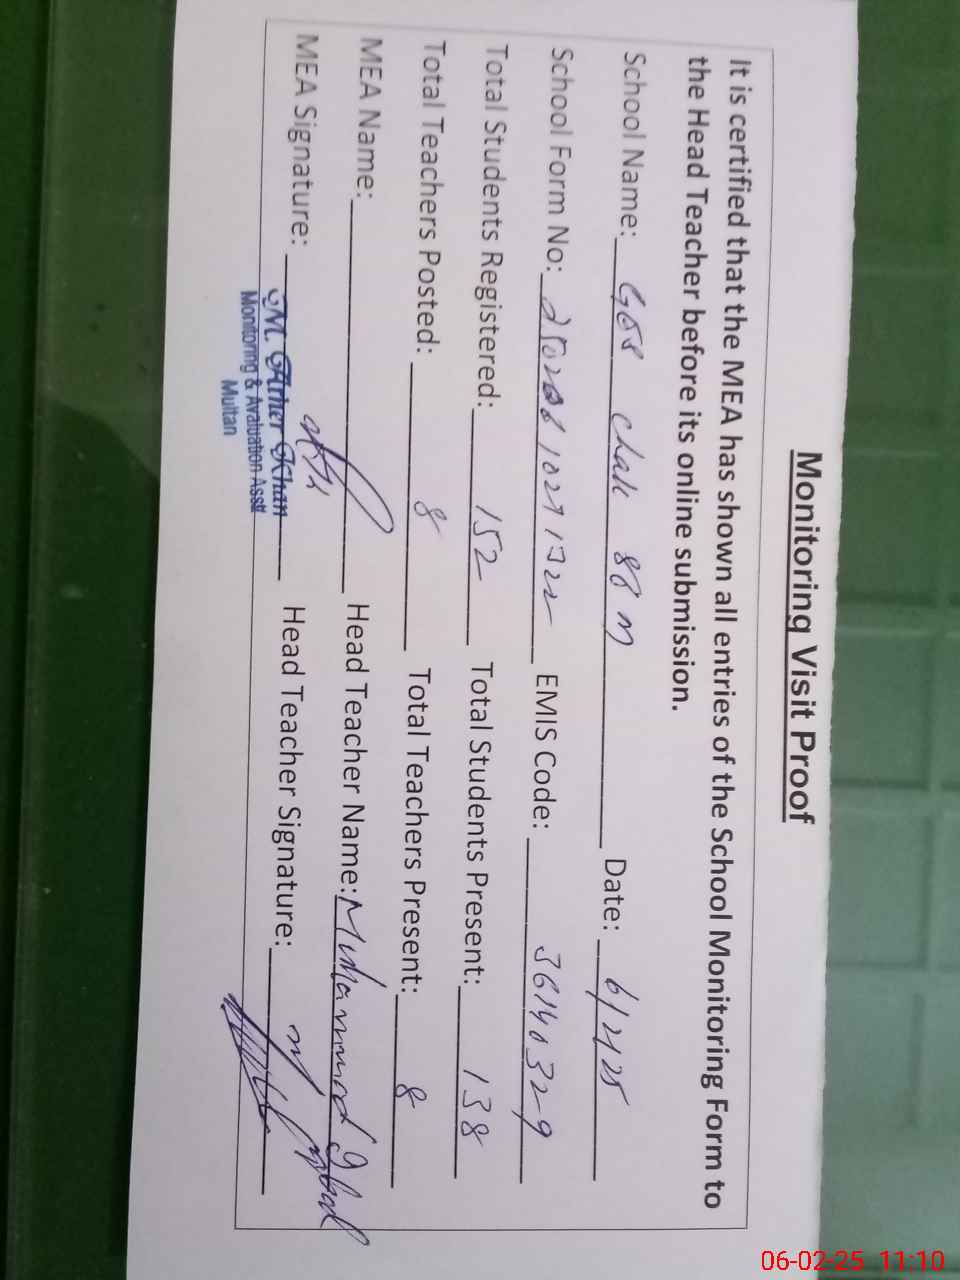 Monitoring Visit Proof
It is certified that the MEA has shown all entries of the School Monitoring Form to
the Head Teacher before its online submission.
School Name: chak 88 m Date: 6/2/25
School Form No: EMIS Code: 36140329
Total Students Registered: 152 Total Students Present: 138
Total Teachers Posted: 8 Total Teachers Present: 8
MEA Name: Head Teacher Name: Muhammad Iqbal
MEA Signature: Head Teacher Signature:
M. Ather Khan
Monitoring & Avaluation Asstt
Multan
06-02-25 11:10